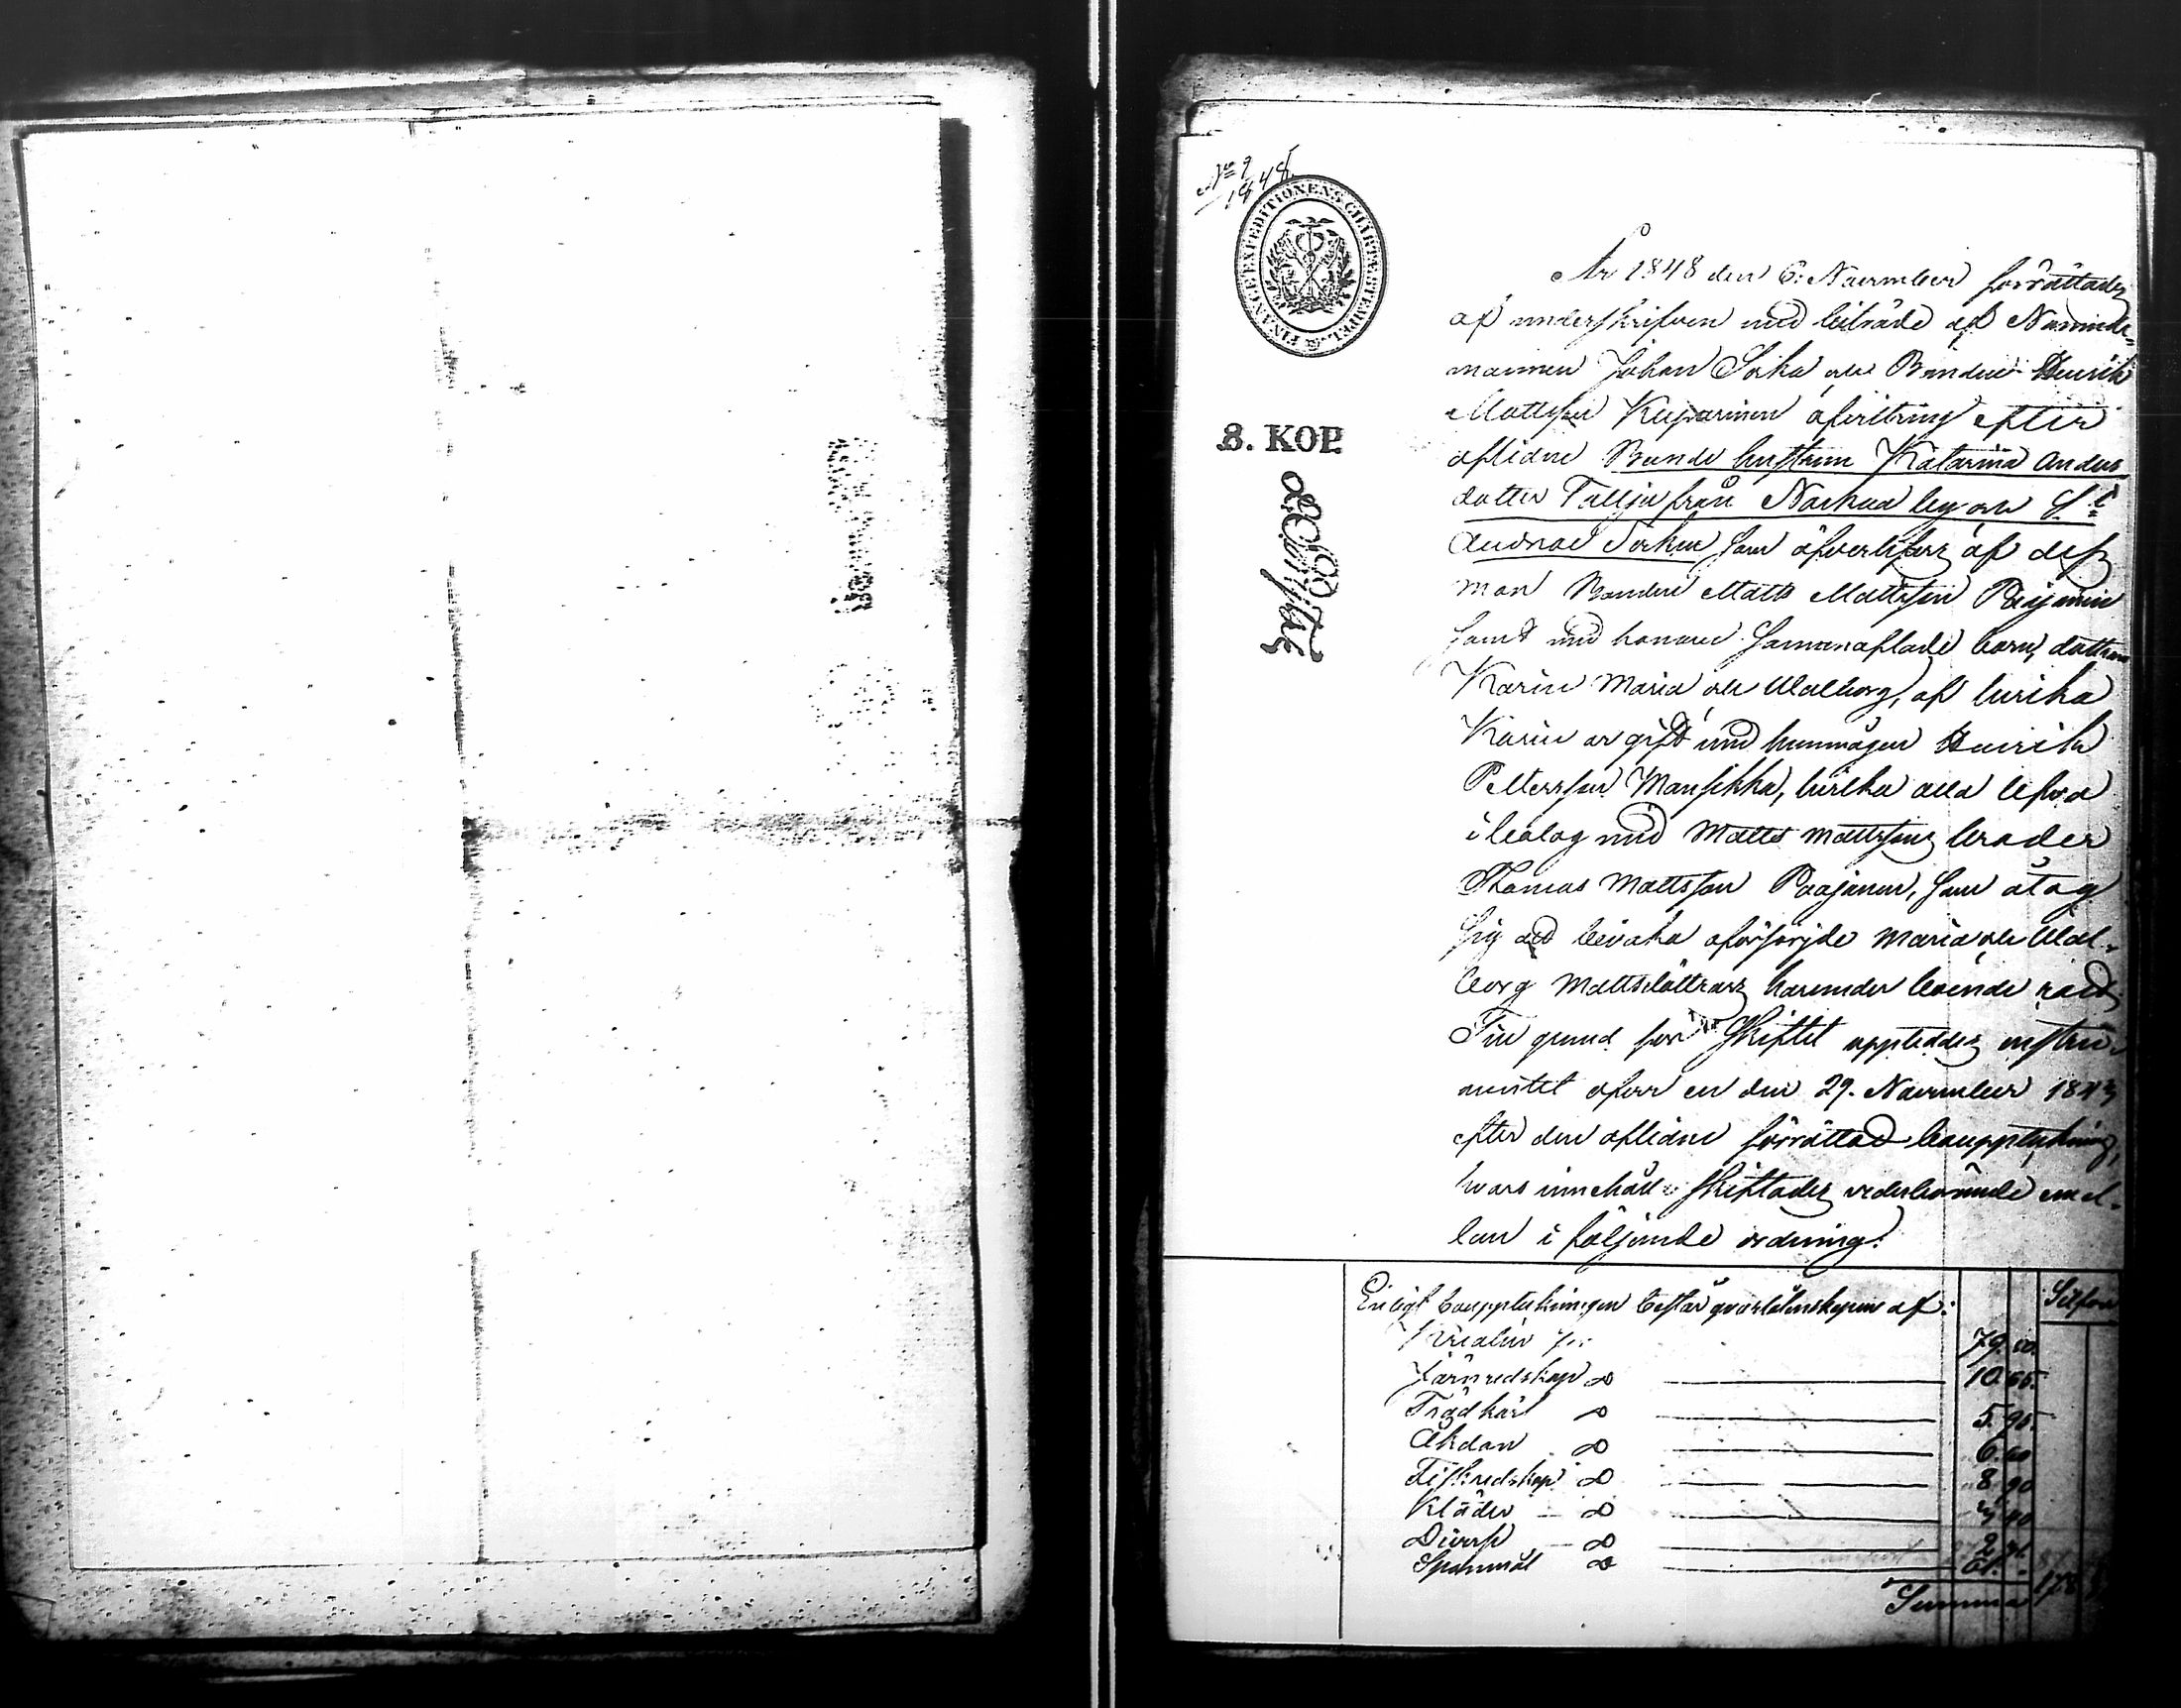 N:o 7
1848.
FINANCE EXPEDITIONENS CHARTÆ STEMPEL.
8. KOP.
År 1848 den 6: November förrättades
af underskrifven med biträde af Nämnde-
mannen Johan Sorha och Bonden Henrik
Mattsson Kuparinen afvittring efter
aflidne Bonde hustrun Katarina Anders
dotter Tallja från Narhua by och S:t
Andreæ Socken som öfverlefves af dess
man Bonden Matts Mattsson Paajanen
samt med honom sammanaflade barn, döttrarne
Karin Maria och Walborg, af hvilka
Karin är gift med hemmågen Henrik
Pettersson Mansikka, hvilka alla lefva
i bolag med Matts Mattssons broder
Thomas Mattsson Paajanen, som åtog
sig att bevaka oförsörjde Maria och Wal-
borg Mattsdöttrars härunder beroende rätt
Till grund för skiftet uppleddes instru-
mentet öfver en den 29. November 1843
efter den aflidne förrättad bouppteckning,
hvars innehåll skiftades vederbörande emel-
lan i följande ordning:
Enligt bouppteckningen består qvarlåtenskapen af:
Silfver
Kreatur för 79. 00.
Järnredskap do 10. 65.
Trädkärl do 5. 95.
Åkdon do 6. 60
Fiskredskap do 8. 90
Kläder do 40
Diverse do 2.
Spanmål do 61. -
Summa 178